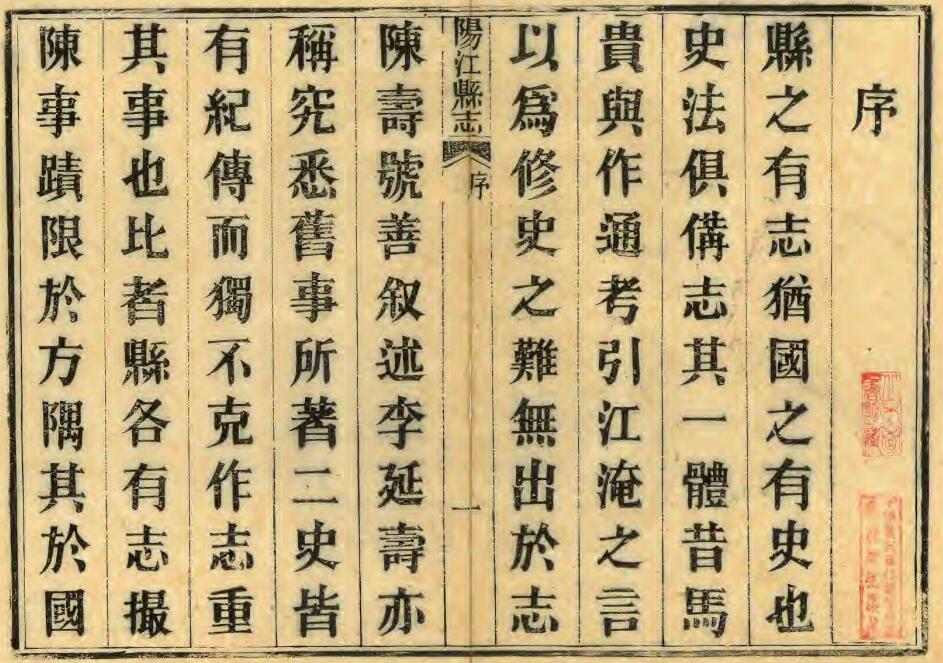 序
縣之有志猶國之有史也
史法俱備志其一體昔馬
貴與作通考引江淹之言
以為修史之難無出於志
陽江縣志
序
一
陳壽號善叙述李延壽亦
稱究悉舊事所著二史皆
有紀傳而獨不克作志重
其事也比者縣各有志撮
陳事蹟限於方隅其於國